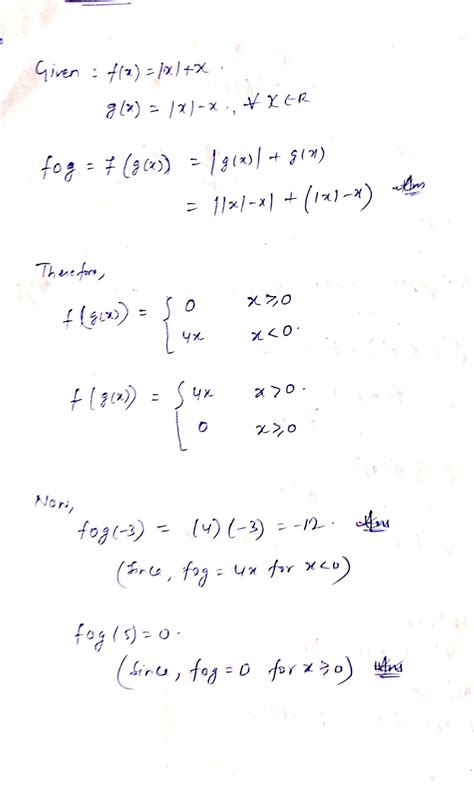 Given : f(x) = |x|+x .
g(x) = |x|-x ., ∀ x∈R
fog = f(g(x)) = |g(x)| + g(x)
= ||x|-x| + (|x|-x) Ans
Therefore,
f(g(x)) = { 0 x⩾0
4x x<0.
f(g(x)) = { 4x x>0.
0 x⩾0
Now,
fog(-3) = (4)(-3) = -12. Ans
(Since, fog = 4x for x<0)
fog(5)=0.
(Since, fog = 0 for x⩾0) Ans